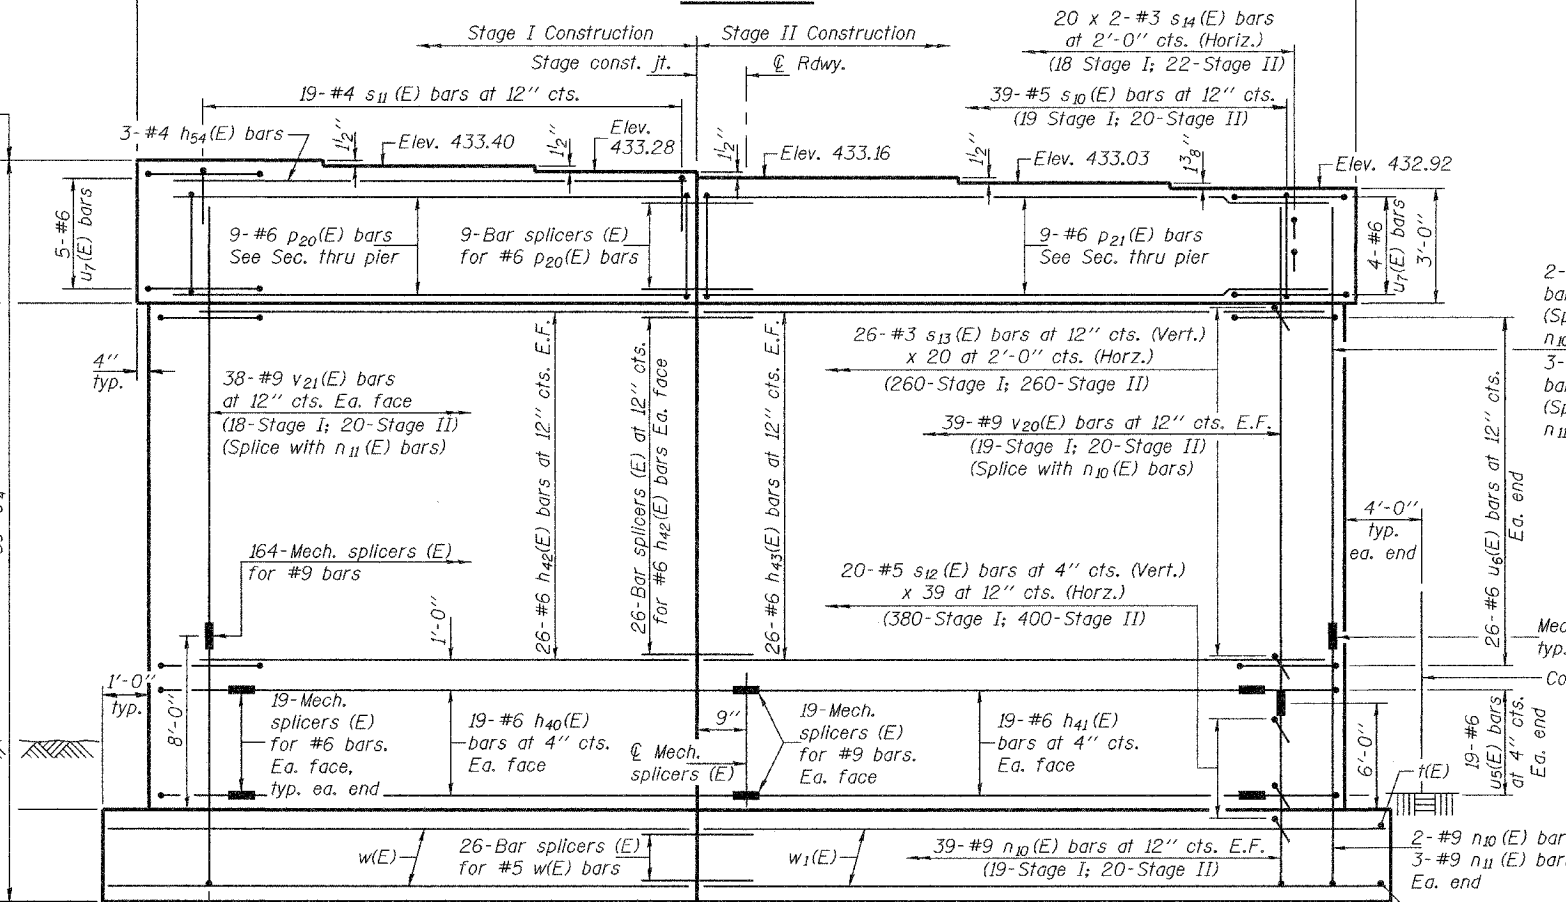 Stage I Construction
Stage II Construction
Stage const. jt.
℄ Rdwy.
20 x 2-#3 s14(E) bars
at 2'-0" cts. (Horiz.)
(18 Stage I; 22-Stage II)
19-#4 s11(E) bars at 12" cts.
39-#5 s10(E) bars at 12" cts.
(19 Stage I; 20-Stage II)
3-#4 h54(E) bars
1½"
Elev. 433.40
1½"
Elev.
433.28
1½"
Elev. 433.16
1½"
Elev. 433.03
1⅜"
Elev. 432.92
5-#6
u7(E) bars
9-#6 p20(E) bars
See Sec. thru pier
9-Bar splicers (E)
for #6 p20(E) bars
9-#6 p21(E) bars
See Sec. thru pier
4-#6
u7(E) bars
3'-0"
4"
typ.
38-#9 v21(E) bars
at 12" cts. Ea. face
(18-Stage I; 20-Stage II)
(Splice with n11(E) bars)
26-#6 h42(E) bars at 12" cts. E.F.
26-Bar splicers (E) at 12" cts.
for #6 h42(E) bars Ea. face
26-#6 h43(E) bars at 12" cts. E.F.
26-#3 s13(E) bars at 12" cts. (Vert.)
x 20 at 2'-0" cts. (Horz.)
(260-Stage I; 260-Stage II)
39-#9 v20(E) bars at 12" cts. E.F.
(19-Stage I; 20-Stage II)
(Splice with n10(E) bars)
26-#6 u6(E) bars at 12" cts.
Ea. end
2-
3-
4'-0"
typ.
ea. end
164-Mech. splicers (E)
for #9 bars
20-#5 s12(E) bars at 4" cts. (Vert.)
x 39 at 12" cts. (Horz.)
(380-Stage I; 400-Stage II)
1'-0"
typ.
typ.
1'-0"
8'-0"
19-Mech.
splicers (E)
for #6 bars.
Ea. face,
typ. ea. end
19-#6 h40(E)
bars at 4" cts.
Ea. face
9"
℄ Mech.
splicers (E)
19-Mech.
splicers (E)
for #9 bars.
Ea. face
19-#6 h41(E)
bars at 4" cts.
Ea. face
6'-0"
19-#6
u5(E) bars
at 4" cts.
Ea. end
t(E)
w(E)
26-Bar splicers (E)
for #5 w(E) bars
w1(E)
39-#9 n10(E) bars at 12" cts. E.F.
(19-Stage I; 20-Stage II)
2-#9 n10(E) bar
3-#9 n11(E) bar
Ea. end